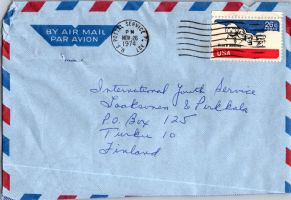 BY AIR MAIL
PAR AVION
U.S. POSTAL SERVICE
PM
NOV 26
1974
26c
USA
International Youth Service
Saaksonen & Pirkkala
P.O. Box 125
Turku 10
Finland